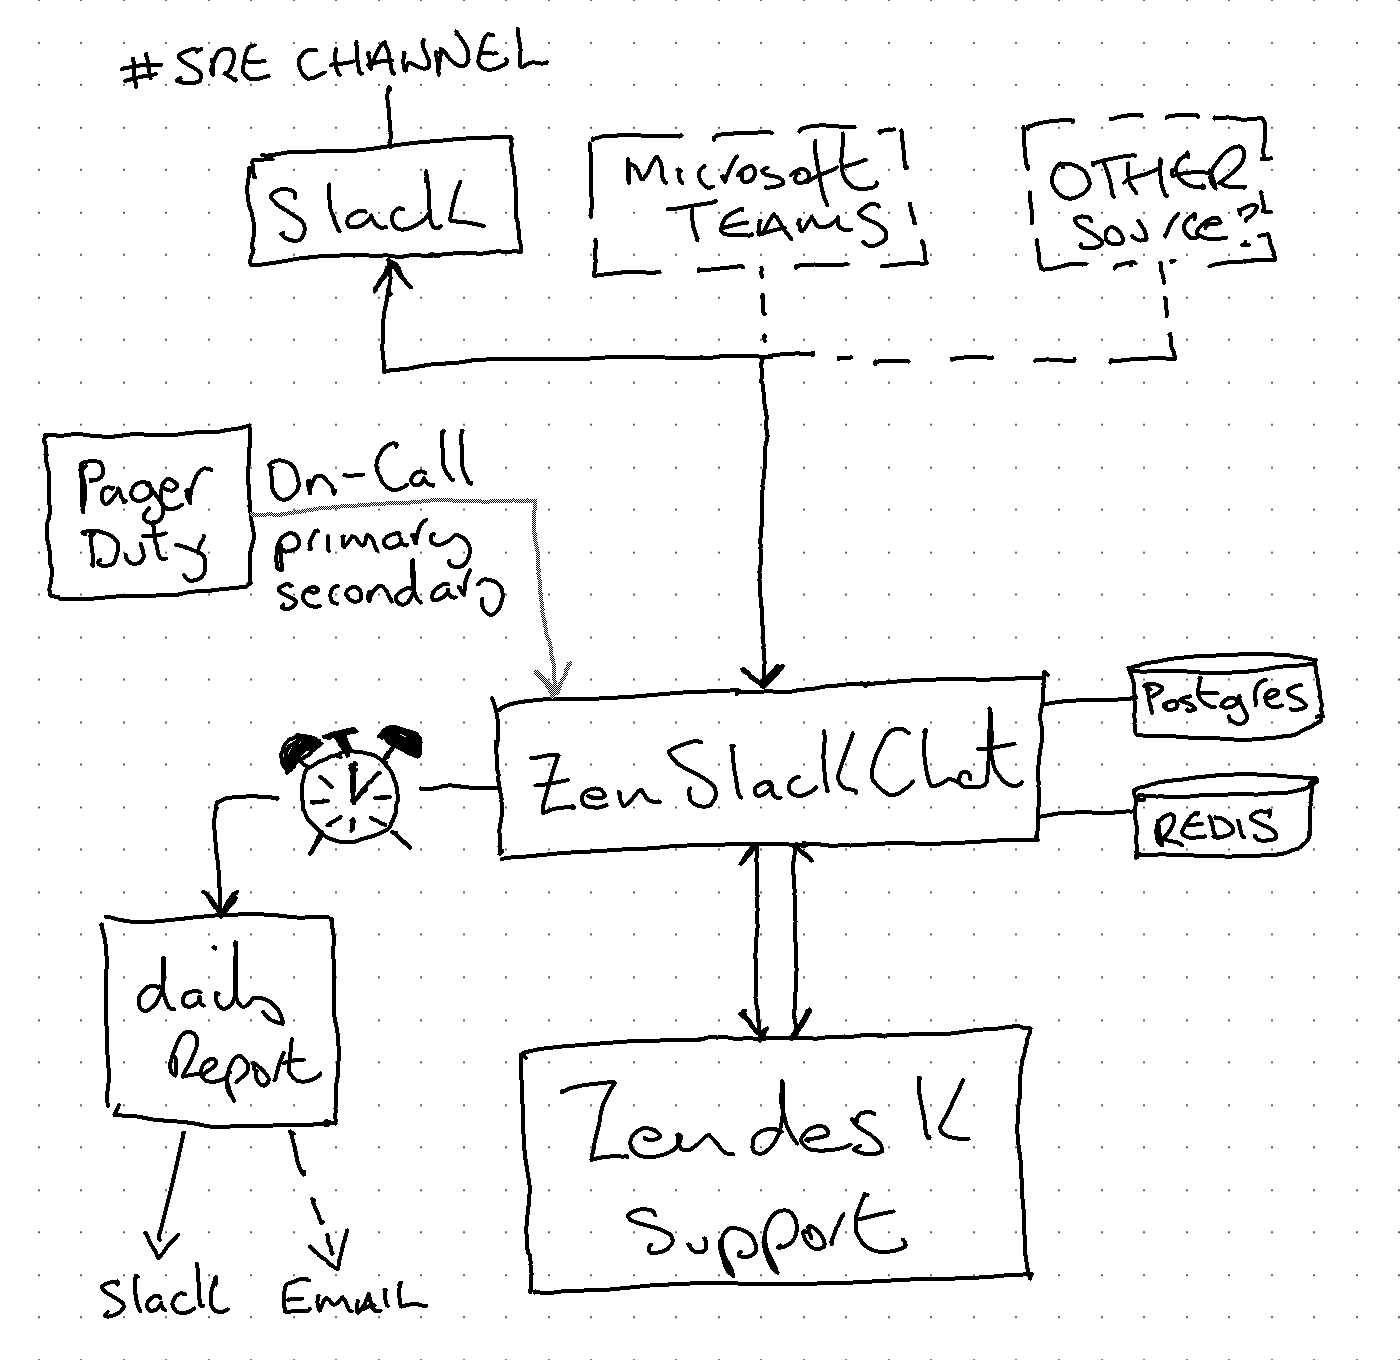 #SRE CHANNEL
Slack
Microsoft
TEAMS
OTHER
Source?
Pager
Duty
On-Call
primary
secondary
Zen Slack Chat
Postgres
REDIS
daily
Report
Zendesk
Support
Slack
EMAIL